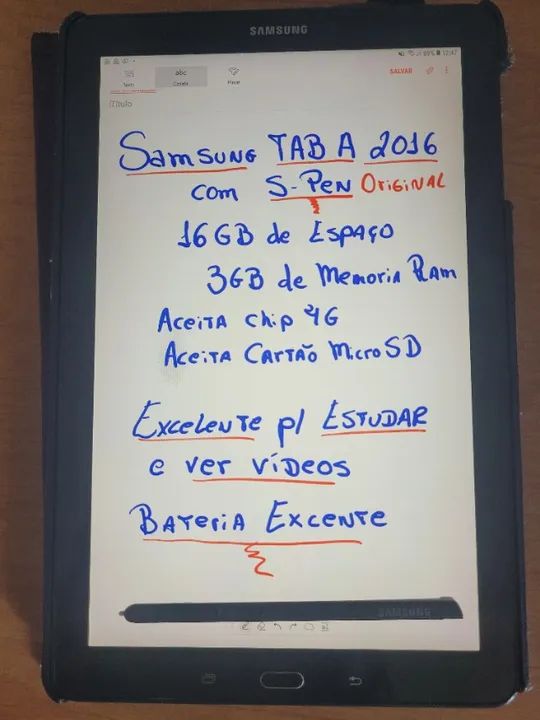 SAMSUNG
89% 12:47
abc
SALVAR
Título
SAMSUNG TAB A 2016
COM S-PEN ORIGINAL
16GB de ESPAÇO
3GB de Memoria RAM
ACEITA chip 4G
ACEITA CARTÃO MicroSD
EXCELENTE p/ ESTUDAR
e ver vídeos
BATERIA EXCENTE
SAMSUNG